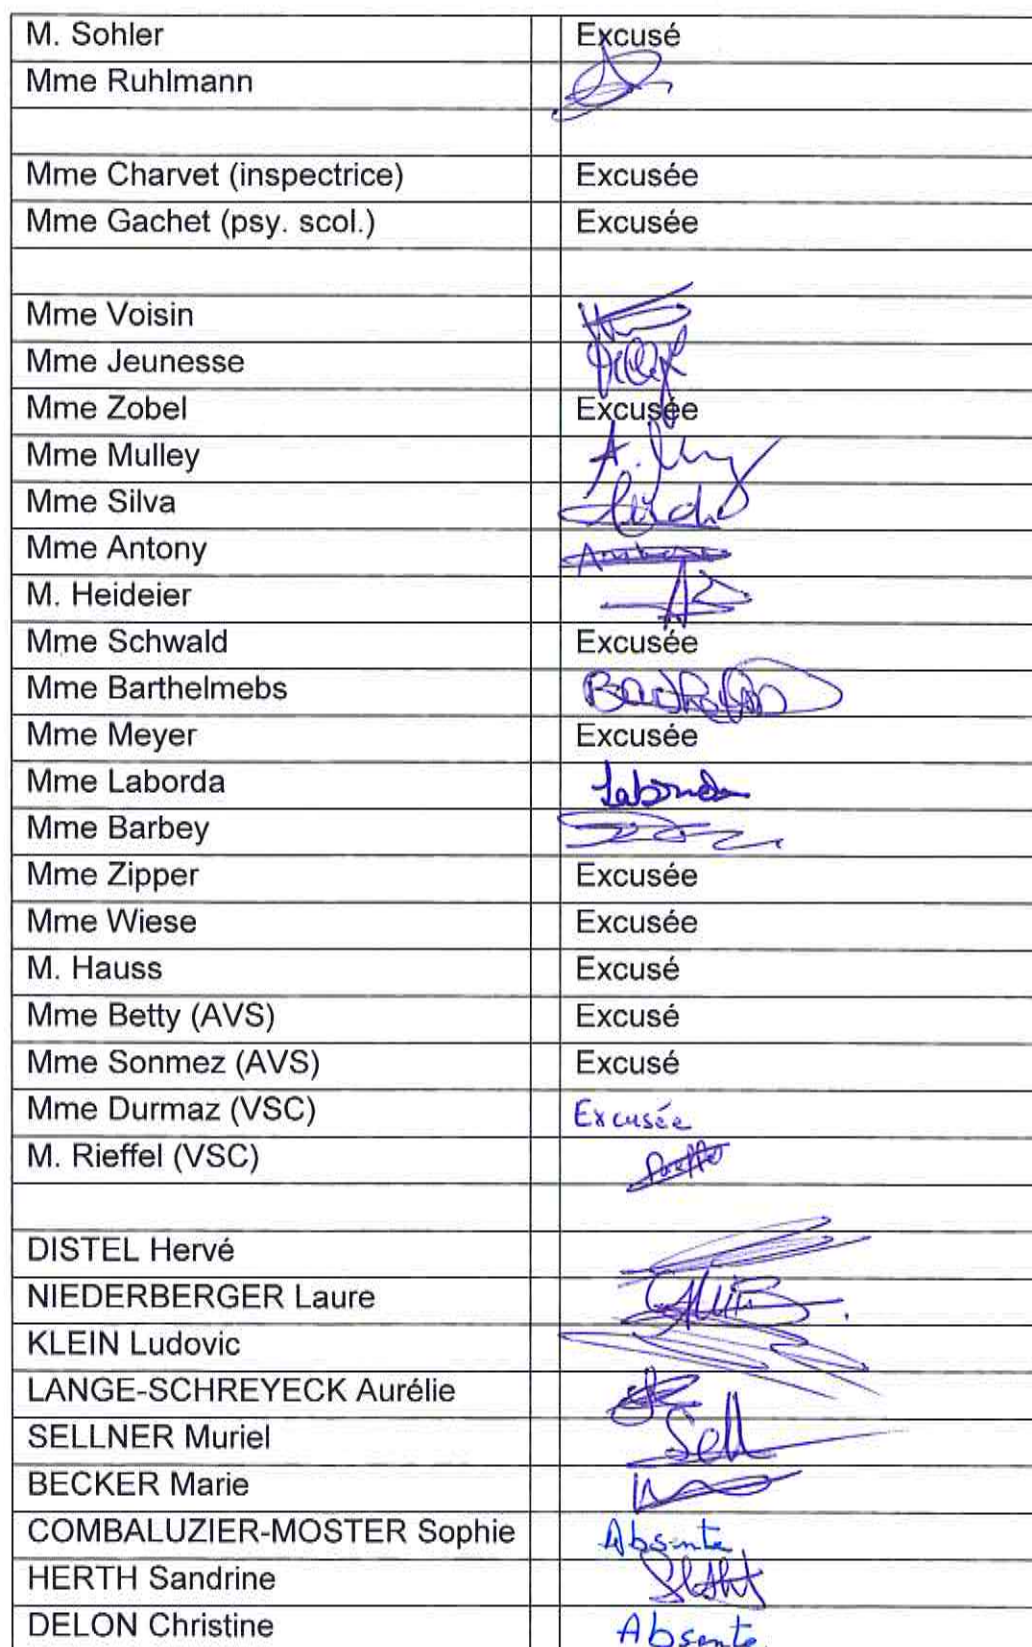 M. Sohler Excusé
Mme Ruhlmann
Mme Charvet (inspectrice) Excusée
Mme Gachet (psy. scol.) Excusée
Mme Voisin
Mme Jeunesse
Mme Zobel Excusée
Mme Mulley
Mme Silva
Mme Antony
M. Heideier
Mme Schwald Excusée
Mme Barthelmebs
Mme Meyer Excusée
Mme Laborda Laborda
Mme Barbey
Mme Zipper Excusée
Mme Wiese Excusée
M. Hauss Excusé
Mme Betty (AVS) Excusé
Mme Sonmez (AVS) Excusé
Mme Durmaz (VSC) Excusée
M. Rieffel (VSC)
DISTEL Hervé
NIEDERBERGER Laure
KLEIN Ludovic
LANGE-SCHREYECK Aurélie
SELLNER Muriel Sell
BECKER Marie
COMBALUZIER-MOSTER Sophie Absente
HERTH Sandrine
DELON Christine Absente